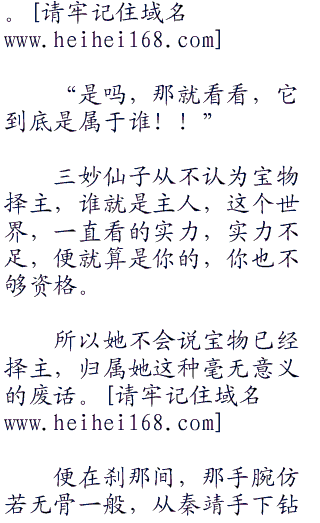 。[请牢记住域名
www.heihei168.com]
“是吗，那就看看，它
到底是属于谁！！”
三妙仙子从不认为宝物
择主，谁就是主人，这个世
界，一直看的实力，实力不
足，便就算是你的，你也不
够资格。
所以她不会说宝物已经
择主，归属她这种毫无意义
的废话。[请牢记住域名
www.heihei168.com]
便在刹那间，那手腕仿
若无骨一般，从秦靖手下钻